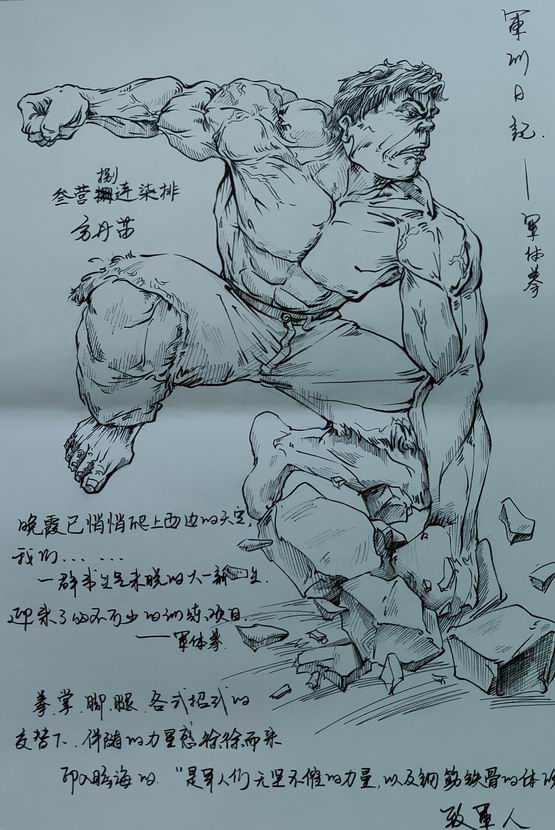 軍训日記——軍体拳
叁营捌连柒排
方丹苗
晚霞已悄悄爬上西边的天空,
我们......
一群书生气未脱的大一新生.
迎来了必不可少的训练项目.
——軍体拳.
拳.掌.脚.腿.各式招式的
交替下.伴随的力量感徐徐而来
印入脑海的."是军人们无坚不摧的力量,以及钢筋铁骨的体
致軍人